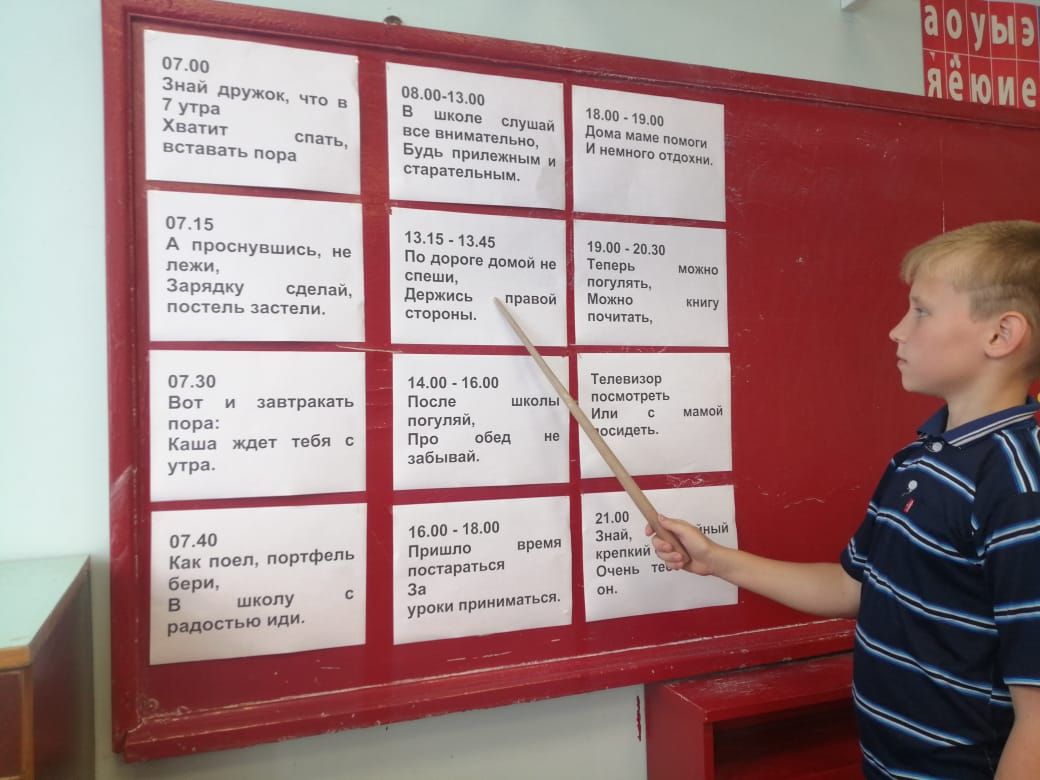 07.00
Знай дружок, что в
7 утра
Хватит спать,
вставать пора
07.15
А проснувшись, не
лежи,
Зарядку сделай,
постель застели.
07.30
Вот и завтракать
пора:
Каша ждет тебя с
утра.
07.40
Как поел, портфель
бери,
В школу с
радостью иди.
08.00-13.00
В школе слушай
все внимательно,
Будь прилежным и
старательным.
13.15 - 13.45
По дороге домой не
спеши,
Держись правой
стороны.
14.00 - 16.00
После школы
погуляй,
Про обед не
забывай.
16.00 - 18.00
Пришло время
постараться
За
уроки приниматься.
18.00 - 19.00
Дома маме помоги
И немного отдохни.
19.00 - 20.30
Теперь можно
погулять,
Можно книгу
почитать,
Телевизор
посмотреть
Или с мамой
посидеть.
21.00
Знай,
крепкий
Очень
он.
а о у ы э
я ё ю и е